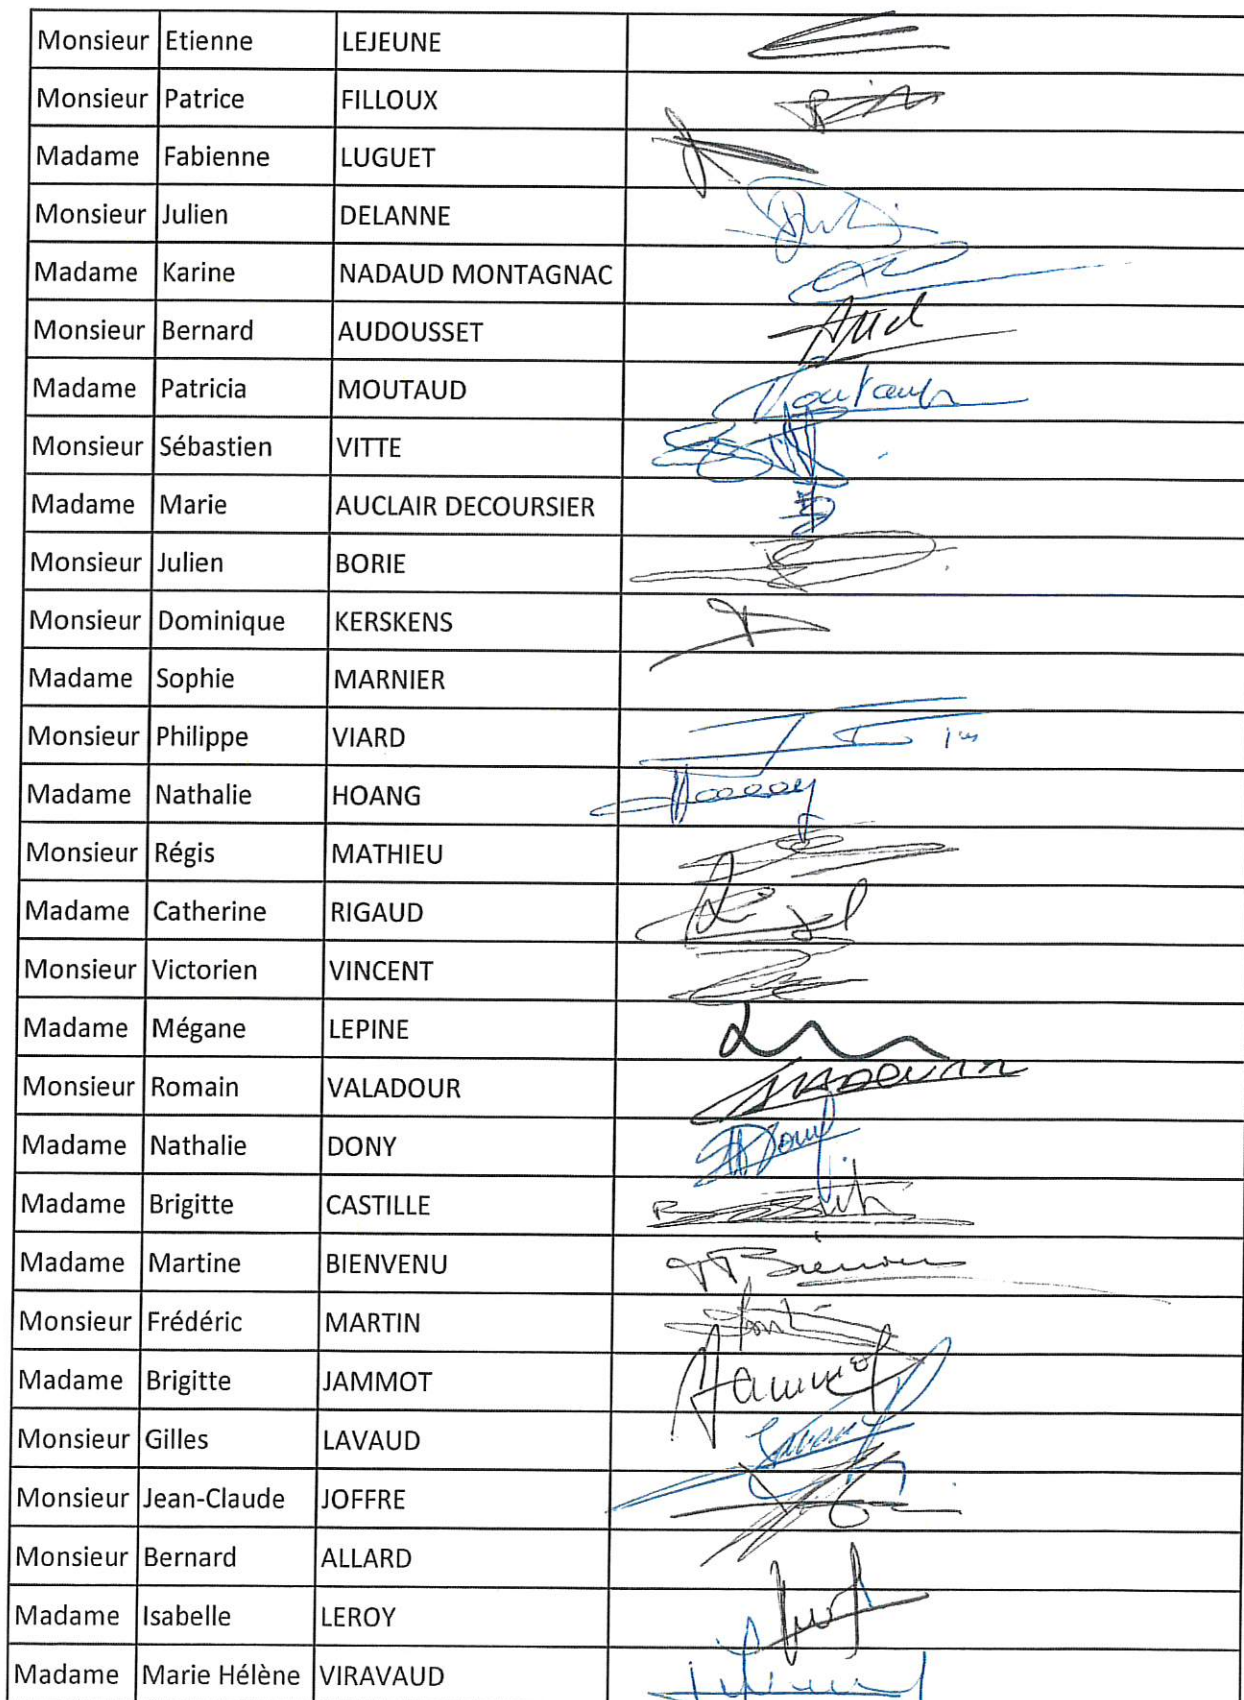 Monsieur Etienne LEJEUNE
Monsieur Patrice FILLOUX
Madame Fabienne LUGUET
Monsieur Julien DELANNE
Madame Karine NADAUD MONTAGNAC
Monsieur Bernard AUDOUSSET
Madame Patricia MOUTAUD
Monsieur Sébastien VITTE
Madame Marie AUCLAIR DECOURSIER
Monsieur Julien BORIE
Monsieur Dominique KERSKENS
Madame Sophie MARNIER
Monsieur Philippe VIARD
Madame Nathalie HOANG
Monsieur Régis MATHIEU
Madame Catherine RIGAUD
Monsieur Victorien VINCENT
Madame Mégane LEPINE
Monsieur Romain VALADOUR
Madame Nathalie DONY
Madame Brigitte CASTILLE
Madame Martine BIENVENU
Monsieur Frédéric MARTIN
Madame Brigitte JAMMOT
Monsieur Gilles LAVAUD
Monsieur Jean-Claude JOFFRE
Monsieur Bernard ALLARD
Madame Isabelle LEROY
Madame Marie Hélène VIRAVAUD